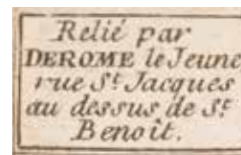 Relié par
DEROME le Jeune
rue St. Jacques
au dessus de St.
Benoît.